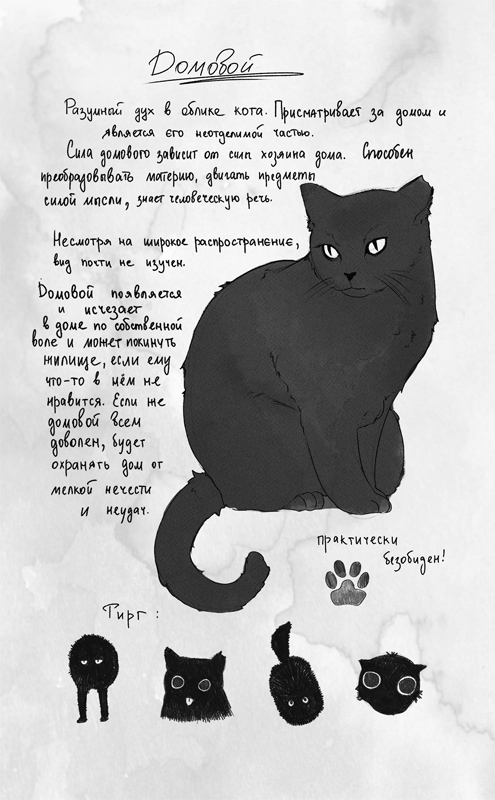 Домовой
Разумный дух в облике кота. Присматривает за домом и
является его неотделимой частью.
Сила домового зависит от силы хозяина дома. Способен
преобрадовывать материю, двигать предметы
силой мысли, знает человеческую речь.
Несмотря на широкое распространение,
вид почти не изучен.
Домовой появляется
и исчезает
в доме по собственной
воле и может покинуть
жилище, если ему
что-то в нём не
нравится. Если же
домовой всем
доволен, будет
охранять дом от
мелкой нечести
и неудач.
практически
безобиден!
Тирг: